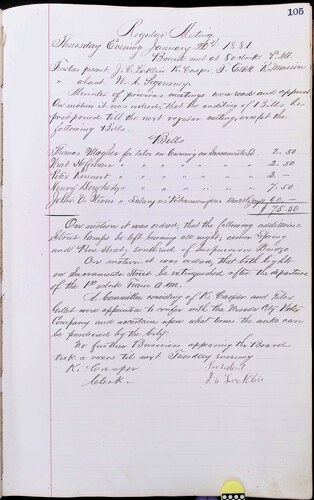 105
Regular Meeting
Thursday Evening January 20th 1881
Board met at 8 o'clock P.M.
Trustees present J. C. Locklin K. Casper F. Gillet K. Monson
" absent W. A. Sigourney.
Minutes of previous meetings were read and approved
On motion it was ordered, that the auditing of Bills be
postponed till the next regular meeting, except the
following Bills.
Bell
Thomas Meagher for labor on Evening on Sacramento St. 2.50
" " " " " 2.50
Peter " " " " " 3. —
Henry " " " " " 7.50
John " Salary as Policeman for 60. —
$ 75.50
On motion it was ordered, that the following additional
Street Lamps be left burning all night, corner Spring
and Pine Street, south end of Suspension Bridge
On motion it was ordered, that both lights
on Sacramento Street be extinguished after the departure
of the 1st o'clock Train a.m.
A Committee consisting of K. Casper and Felix
Gillet were appointed to confer with the Nevada City Water
Company and ascertain upon what terms the works can
be purchased by the City.
No further Business appearing the Board
took a recess till next Tuesday evening
K. Casper President
Clerk. J C Locklin